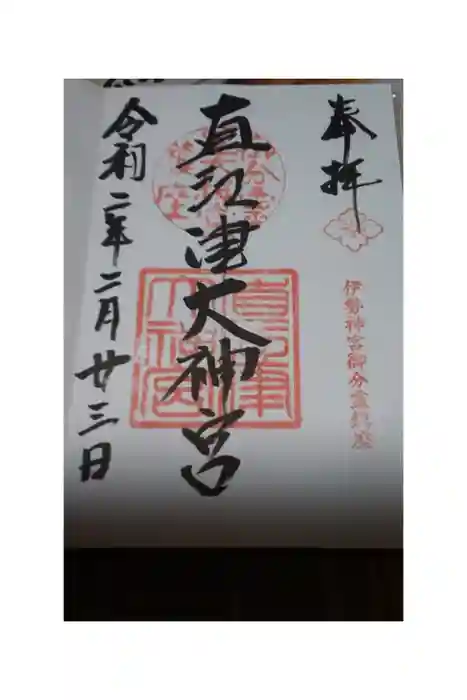 奉拝
伊勢神宮御分霊鎮座
直江津大神宮
直江津大神宮
令和二年二月廿三日